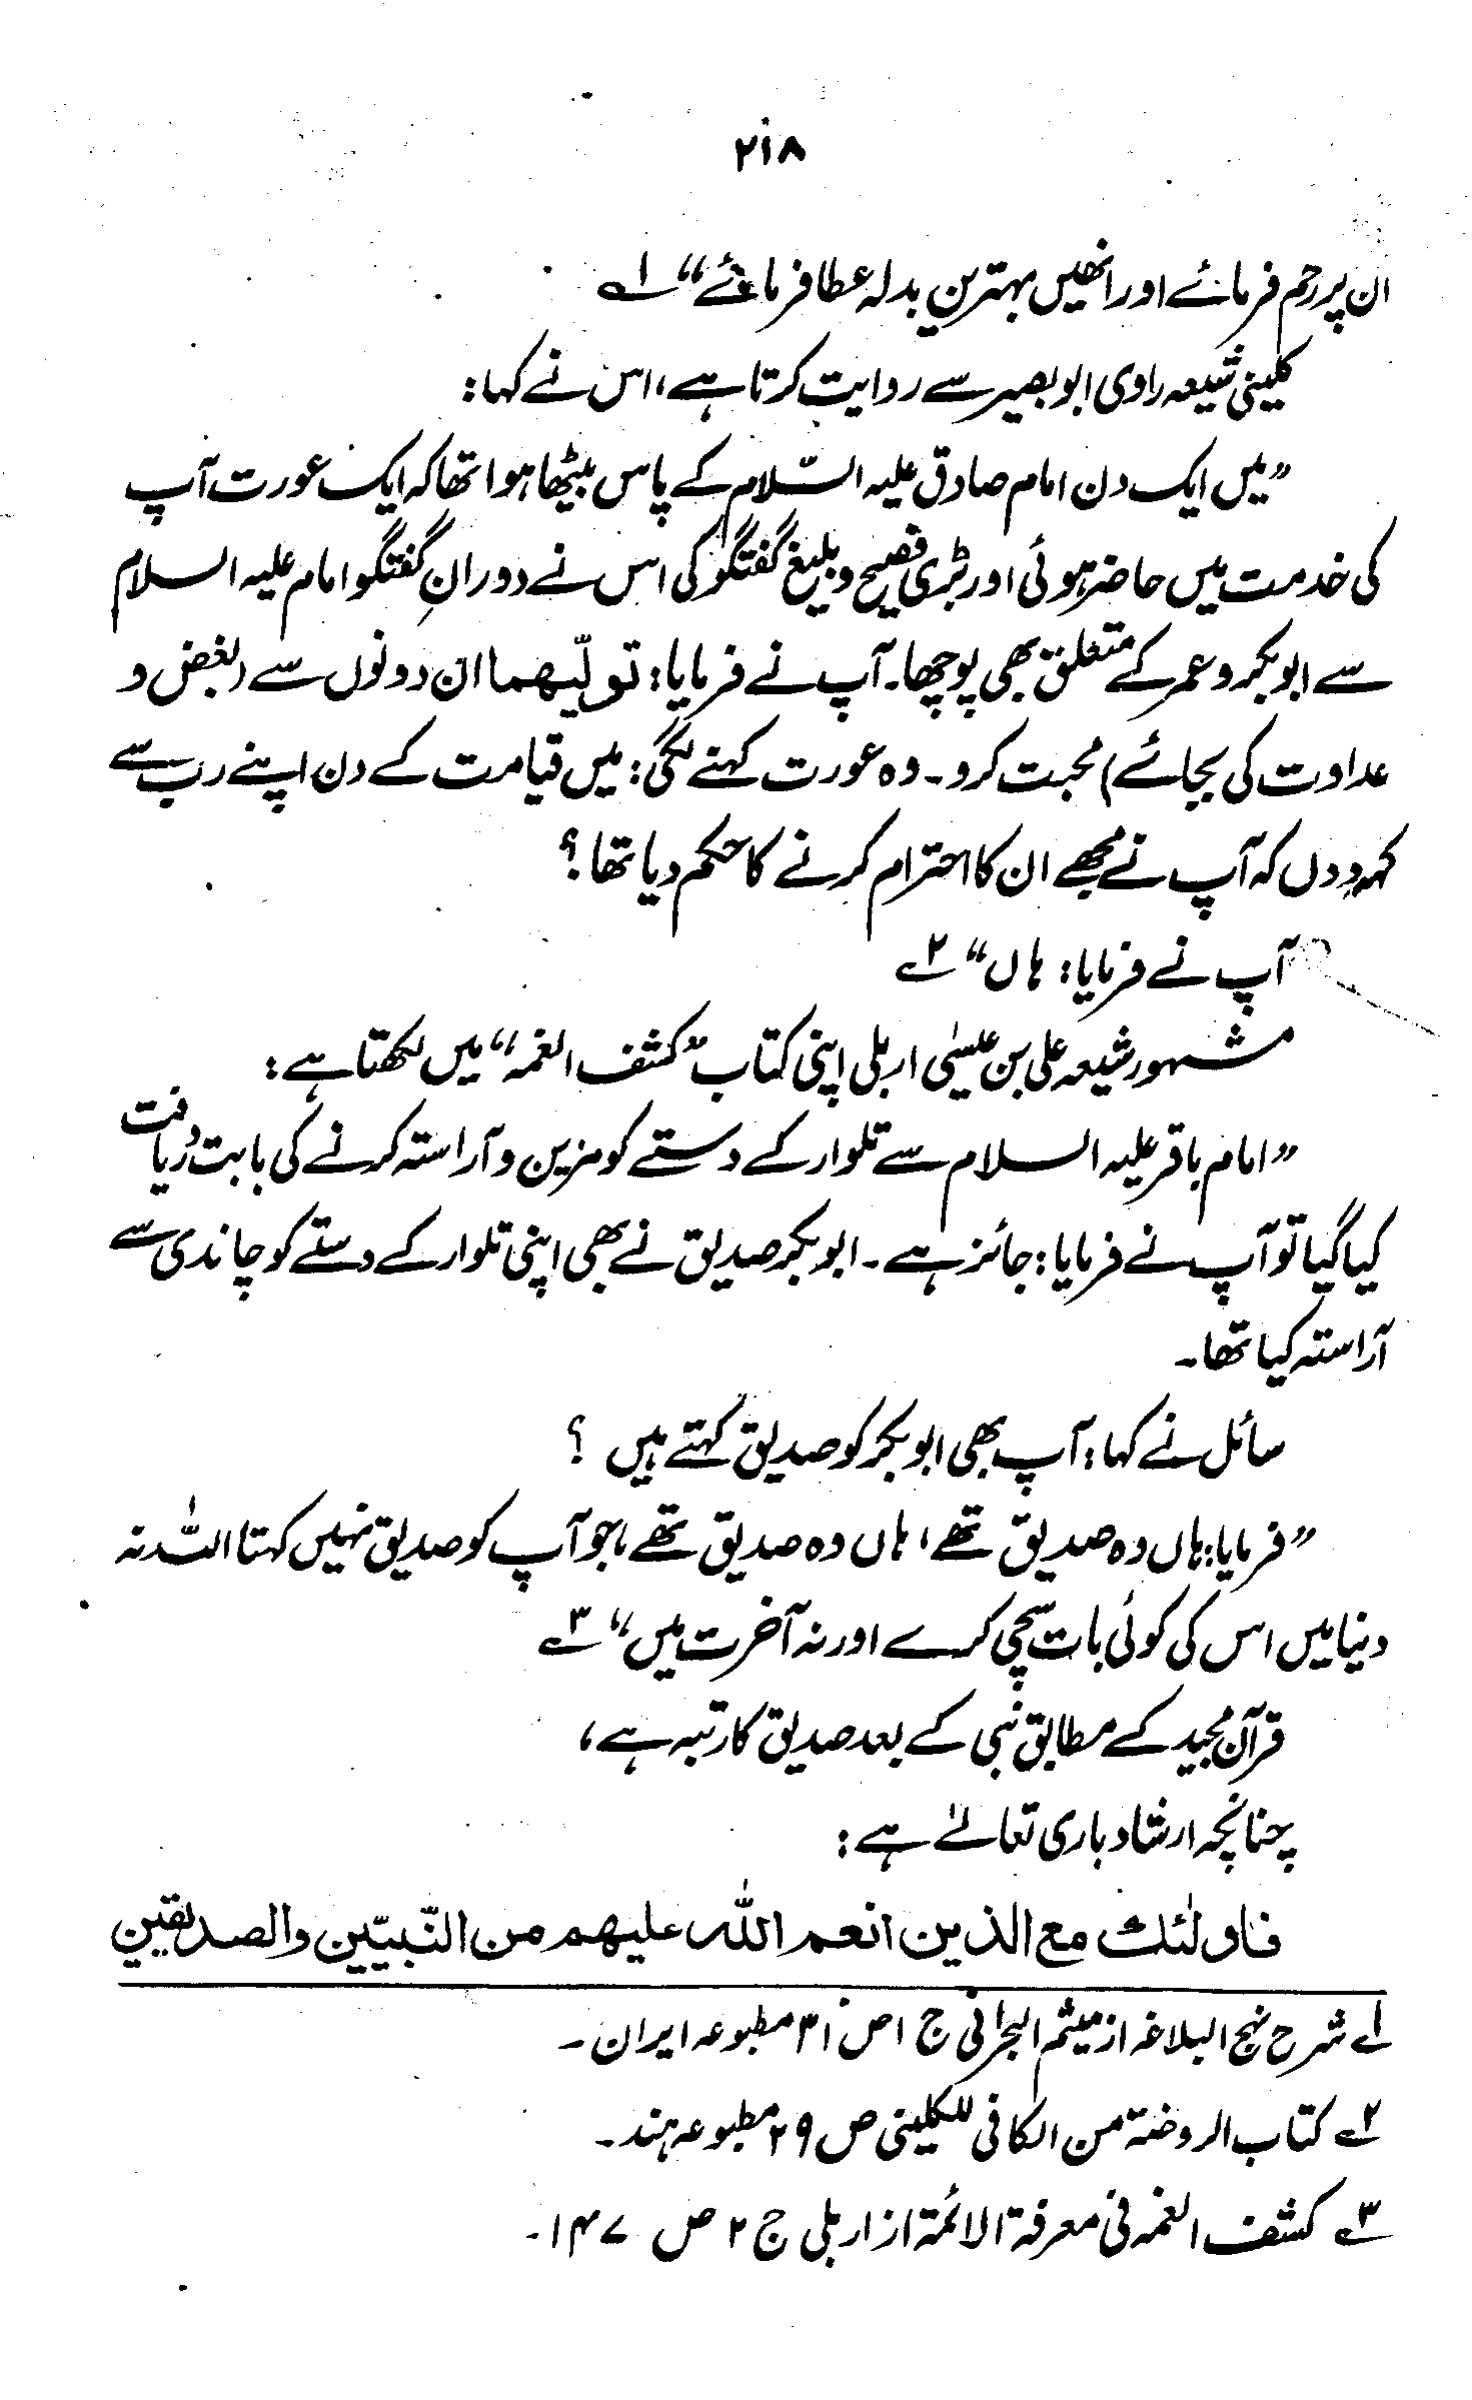 ۲۱۸
ان پر رحم فرمائے اور انھیں بہترین بدلہ عطا فرمائے“ ۱؎
کلینی شیعہ راوی ابو بصیر سے روایت کرتا ہے، اس نے کہا:
”میں ایک دن امام صادق علیہ السّلام کے پاس بیٹھا ہوا تھا کہ ایک عورت آپ
کی خدمت میں حاضر ہوئی اور بڑی فصیح و بلیغ گفتگو کی اس نے دورانِ گفتگو امام علیہ السلام
سے ابوبکر و عمر کے متعلق بھی پوچھا۔ آپ نے فرمایا: تولّیھما ان دونوں سے (بغض و
عداوت کی بجائے) محبت کرو۔ وہ عورت کہنے لگی: میں قیامت کے دن اپنے رب سے
کہہ دوں کہ آپ نے مجھے ان کا احترام کرنے کا حکم دیا تھا؟
آپ نے فرمایا: ہاں“ ۲؎
مشہور شیعہ علی بن عیسٰی اربلی اپنی کتاب ”کشف الغمہ“ میں لکھتا ہے:
”امام باقر علیہ السلام سے تلوار کے دستے کو مزین و آراستہ کرنے کی بابت دریافت
کیا گیا تو آپ نے فرمایا: جائز ہے۔ ابوبکر صدیق نے بھی اپنی تلوار کے دستے کو چاندی سے
آراستہ کیا تھا۔
سائل نے کہا: آپ بھی ابوبکر کو صدیق کہتے ہیں ؟
”فرمایا: ہاں وہ صدیق تھے، ہاں وہ صدیق تھے، جو آپ کو صدیق نہیں کہتا اللہ نہ
دنیا میں اس کی کوئی بات سچی کرے اور نہ آخرت میں“ ۳؎
قرآن مجید کے مطابق نبی کے بعد صدیق کا رتبہ ہے،
چنانچہ ارشاد باری تعالےٰ ہے:
فاولٰئك مع الذين انعم الله عليهم من النّبيّين والصديقين
۱؎ شرح نہج البلاغہ از میثم البحرانی ج ۱ ص ۳۱ مطبوعہ ایران۔
۲؎ کتاب الروضۃ من الکافی للکلینی ص ۲۹ مطبوعہ ہند۔
۳؎ کشف الغمہ فی معرفۃ الائمۃ از اربلی ج ۲ ص ۱۴۷۔